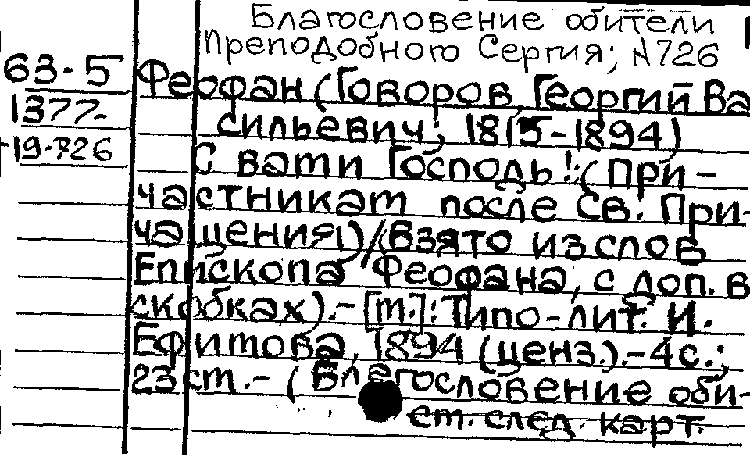 Благословение обители
Преподобного Сергия; N726
63-5 Феофан (Говоров, Георгий Ва
1377- сильевич; 1815-1894)
19-726 С вами Господь! (При-
частникам после Св. При-
чащения)/(Взято из слов
Епископа Феофана, с доп. в
скобках).-[М.]: Типо-лит. И.
Ефимова, 1894 (ценз.).-4с.;
23см.- (Благословение оби-
см. след. карт.